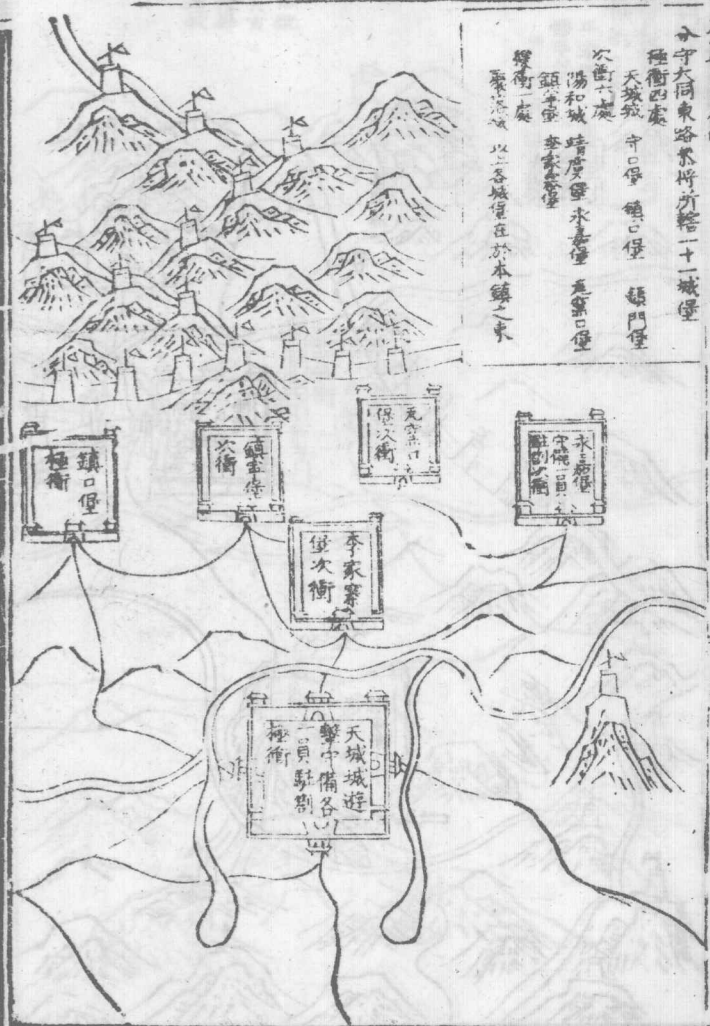 分守大同東路參將所轄一十一城堡
極衝四處
天城城 守口堡 鎮口堡 鎮門堡
次衝六處
陽和城 靖虜堡 永嘉堡 瓦窯口堡
鎮寧堡 李家寨堡
緩衝一處
聚落城 以上各城堡在於本鎮之東
永嘉堡
守備一員
駐劄次衝
瓦窯口
堡次衝
鎮寧堡
次衝
鎮口堡
極衝
李家寨
堡次衝
天城城遊
擊守備各
一員駐劄
極衝